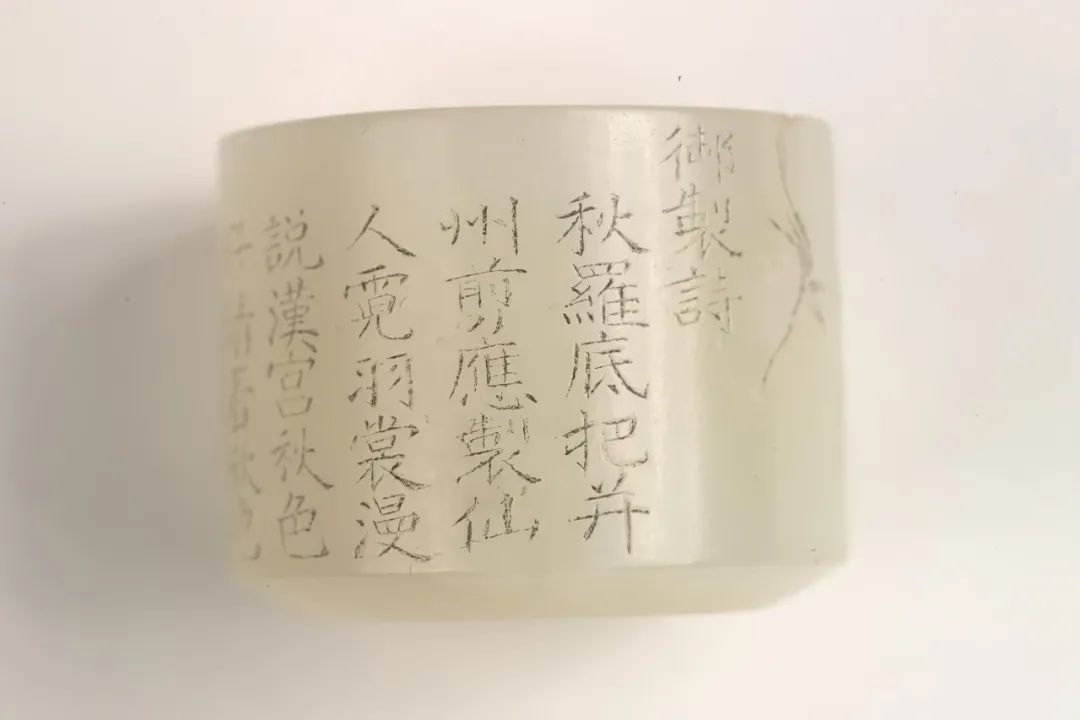 御製詩
秋羅底把并
州剪應製仙
人霓羽裳漫
説漢宮秋色